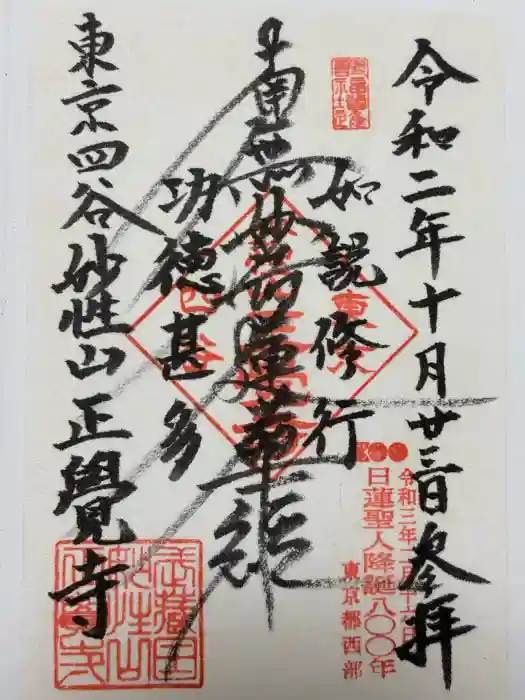 令和二年十月廿三日参拝
如説修行
南無妙法蓮華経
功徳甚多
東京四谷妙性山正覺寺
日蓮聖人降誕八〇〇年
東京都西部